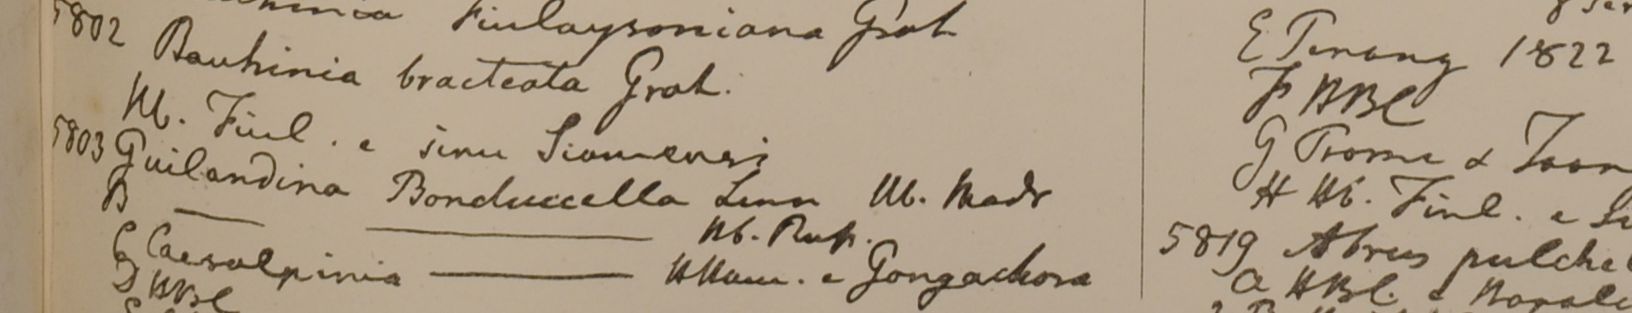 Finlaysoniana Grah
5802 Bauhinia bracteata Grah.
Hb. Finl. e sinu Siamensi
5803 Guilandina Bonduccella Linn Hb. Madr
B — — Hb. Rup.
C Caesalpinia — HHam. e Gongachora
D HBC
E Penang 1822
F HBC
G Prome &
H Hb. Finl. e
5819 Abrus
a HBC. e